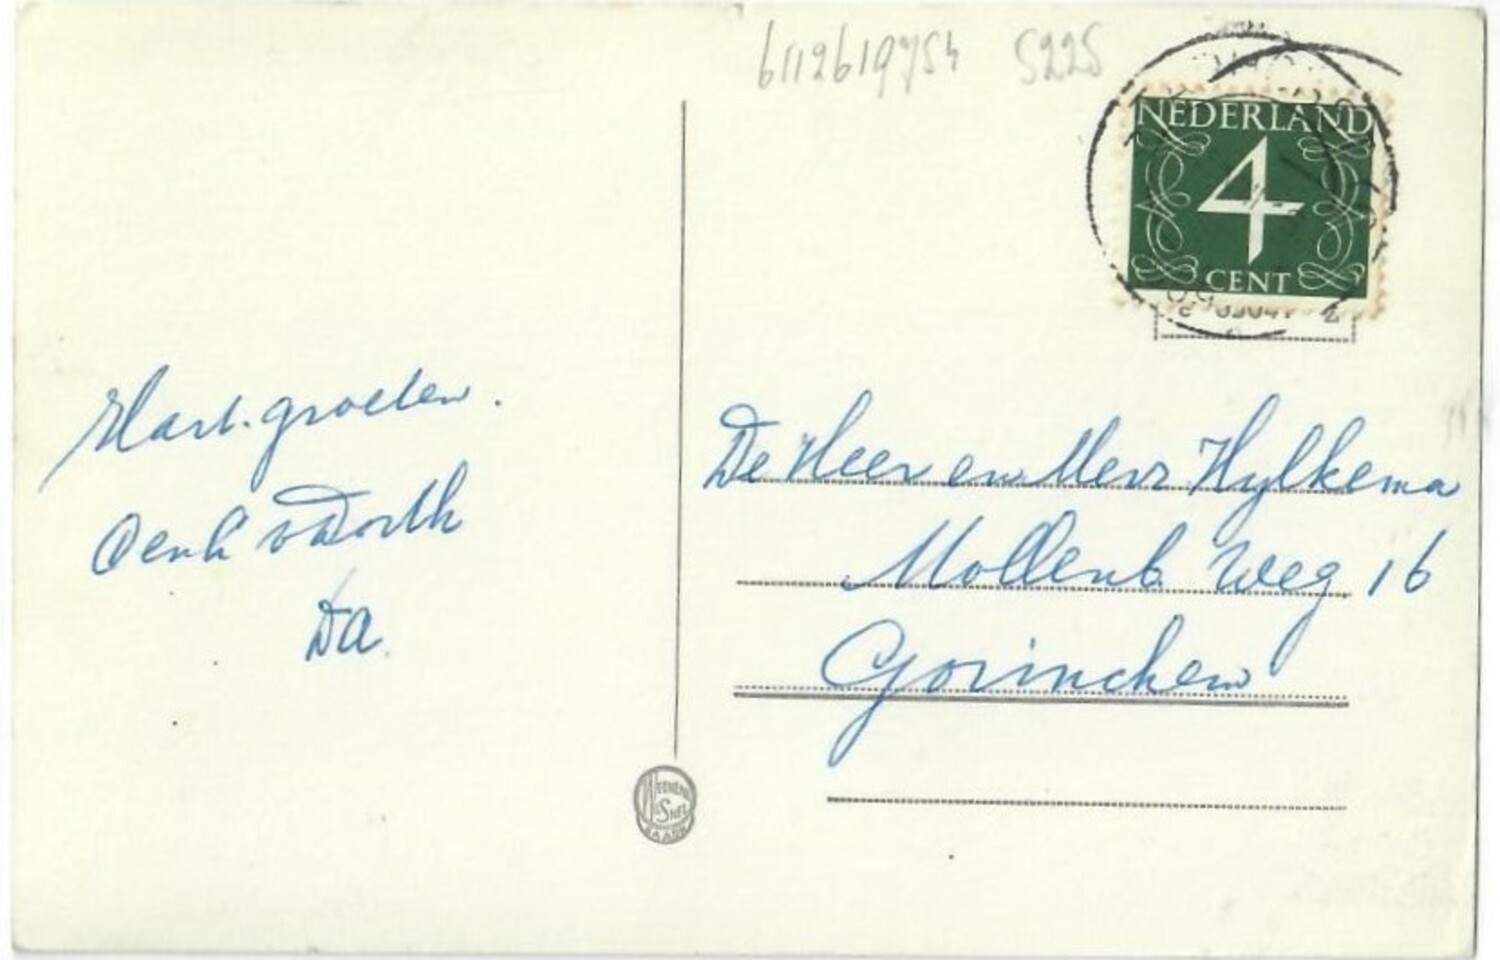 6112619754 5225
NEDERLAND
4
CENT
Hart. groeten.
Da
De Heer en Mevr Hylkema
Mollenb. Weg 16
Gorinchem
WEENENK
& SNEL
BAARN